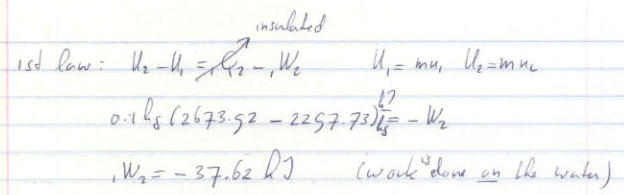 insulated
1st law: U₂ - U₁ = ₁Q₂ - ₁W₂ U₁ = mu₁ U₂ = mu₂
0.1 kg (2673.92 - 2297.73) kJ/kg = - W₂
₁W₂ = - 37.62 kJ (work is done on the water)